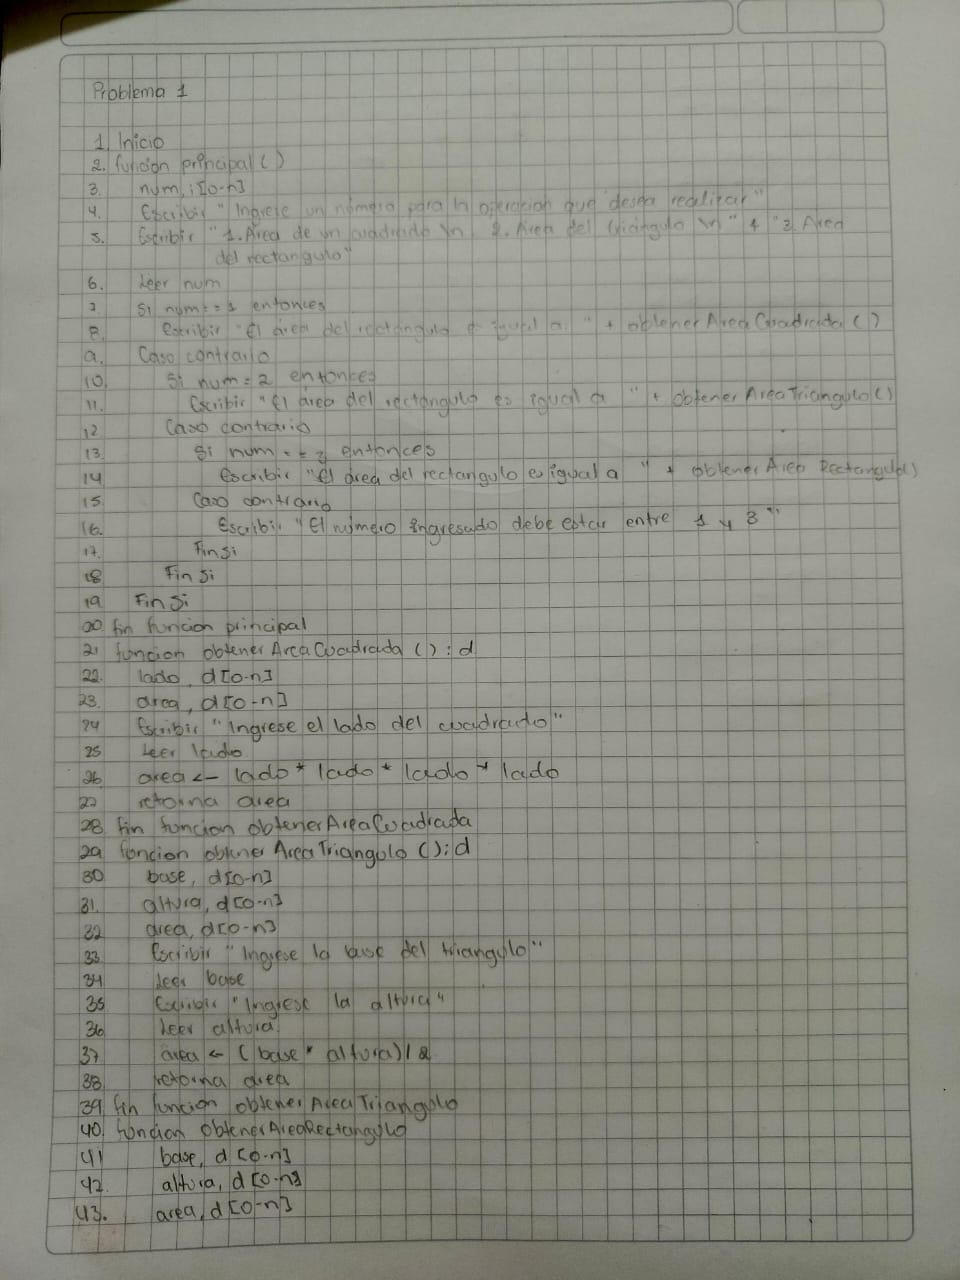 Problema 1
1. Inicio
2. funcion principal ( )
3. num, i [0-n]
4. Escribir "Ingrese un número para la operacion que desea realizar"
5. Escribir "1. Area de un cuadrado \n 2. Area del triángulo \n" + "3. Area
del rectangulo"
6. Leer num
7. Si num == 1 entonces
8. Escribir "El área del rectángulo es igual a: " + obtenerAreaCuadrada ( )
9. Caso contrario
10. Si num = 2 entonces
11. Escribir "El área del rectangulo es igual a " + obtenerAreaTriangulo ( )
12 Caso contrario
13 Si num == 3 entonces
14 Escribir "El área del rectangulo es igual a " + obtenerArea Rectangulo()
15. Caso contrario
16. Escribir "El número ingresado debe estar entre 1 y 3"
17. Fin si
18 Fin si
19 Fin Si
20. fin funcion principal
21 funcion obtenerAreaCuadrada ( ) : d
22. lado, d[0-n]
23. area, d[0-n]
24 Escribir "Ingrese el lado del cuadrado"
25 Leer lado
26 area <- lado * lado * lado * lado
27 retorna area
28 fin funcion obtenerAreaCuadrada
29 funcion obtenerAreaTriangulo ( ) : d
30 base, d[0-n]
31. altura, d[0-n]
32 area, d[0-n]
33 Escribir "Ingrese la base del triangulo"
34 Leer base
35 Escribir "Ingrese la altura"
36 Leer altura
37 area <- (base * altura) / 2
38 retorna area
39 fin funcion obtenerAreaTriangulo
40. funcion obtenerAreaRectangulo
41 base, d [0-n]
42. altura, d [0-n]
43. area, d [0-n]